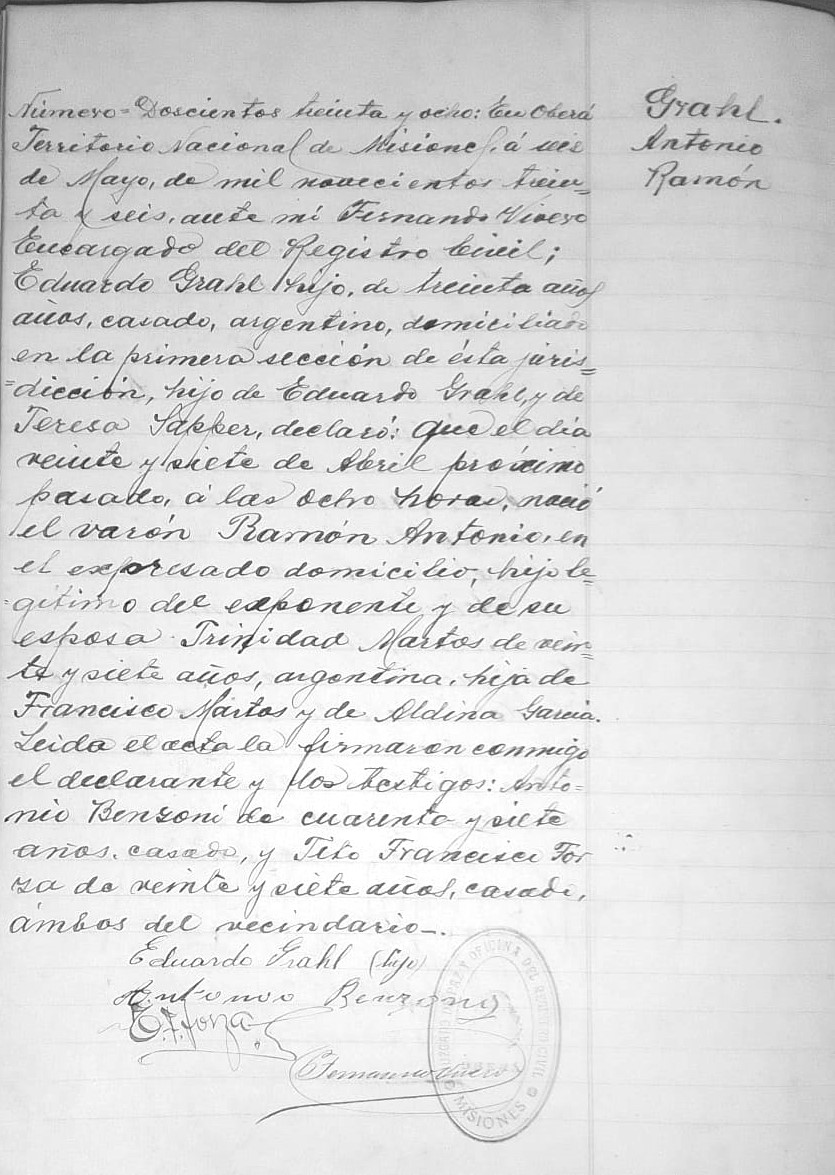 Número = Doscientos treinta y ocho: En Oberá
Territorio Nacional de Misiones, á seis
de Mayo, de mil novecientos trein-
ta y seis, ante mi Fernando Vivero
Encargado del Registro Civil;
Eduardo Grahl hijo, de treinta años
años, casado, argentino, domiciliado
en la primera sección de ésta juris=
=dicción, hijo de Eduardo Grahl, y de
Teresa Sapper, declaró: Que el día
veinte y siete de Abril próximo
pasado, á las ocho horas, nació
el varón Ramón Antonio, en
el expresado domicilio, hijo le=
=gitimo del exponente y de su
esposa Trinidad Martos de vein=
te y siete años, argentina, hija de
Francisco Martos y de Aldina Garcia.
Leida el acta la firmaron conmigo
el declarante y los testigos: Anto=
nio Benzoni de cuarenta y siete
años, casado, y Tito Francisco For
za de veinte y siete años, casado,
ámbos del vecindario-.
Grahl.
Antonio
Ramón
Eduardo Grahl (hijo)
Antonio Benzoni
T. F. Forza
Fernando Vivero
JUZGADO DE PAZ Y OFICINA DEL REGISTRO CIVIL
MISIONES